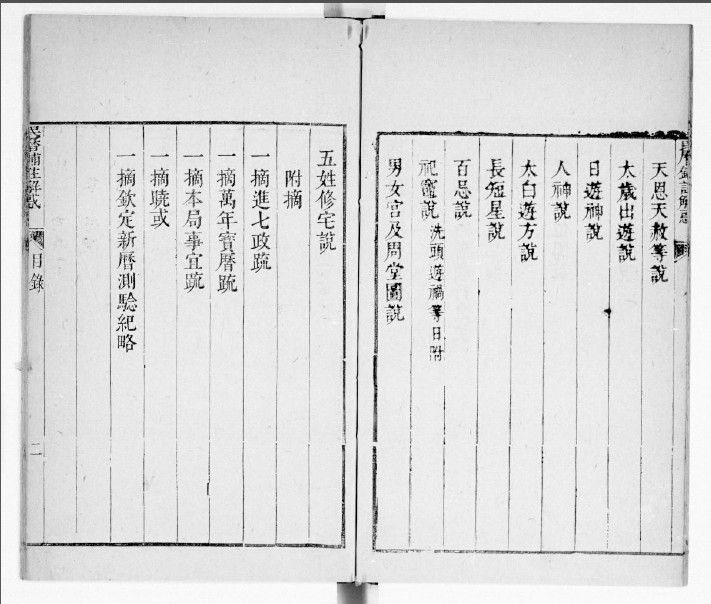 天恩天赦等說
太歲出遊說
日遊神說
人神說
太白遊方說
長短星說
百忌說
祀竈說 洗頭遊禍等日附
男女宮及周堂圖說
五姓修宅說
附摘
一摘進七政䟽
一摘萬年寶曆䟽
一摘本局事宜䟽
一摘曉或
一摘欽定新曆測驗紀略
民曆補註解惑
目錄
二